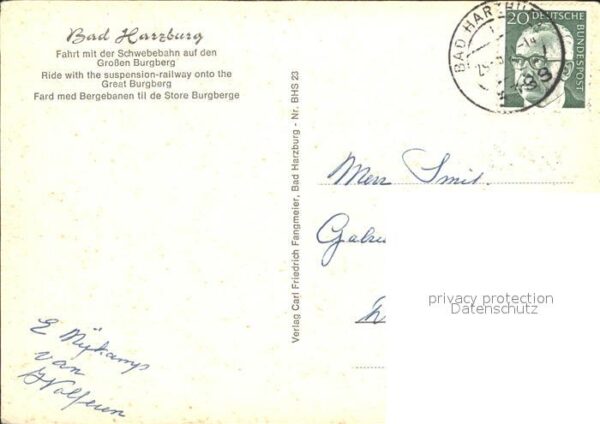 Bad Harzburg
Fahrt mit der Schwebebahn auf den
Großen Burgberg
Ride with the suspension-railway onto the
Great Burgberg
Fard med Bergebanen til de Store Burgberge
Verlag Carl Friedrich Fangmeier, Bad Harzburg - Nr. BHS 23
BAD HARZBU
20 DEUTSCHE
BUNDESPOST
Smit.
privacy protection
Datenschutz
E
van